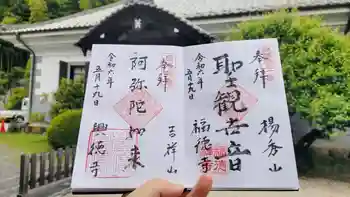 奉拝
楊秀山
聖観世音
令和六年
五月十九日
福徳寺
奉拝
吉祥山
阿弥陀如来
令和六年
五月十九日
興徳寺